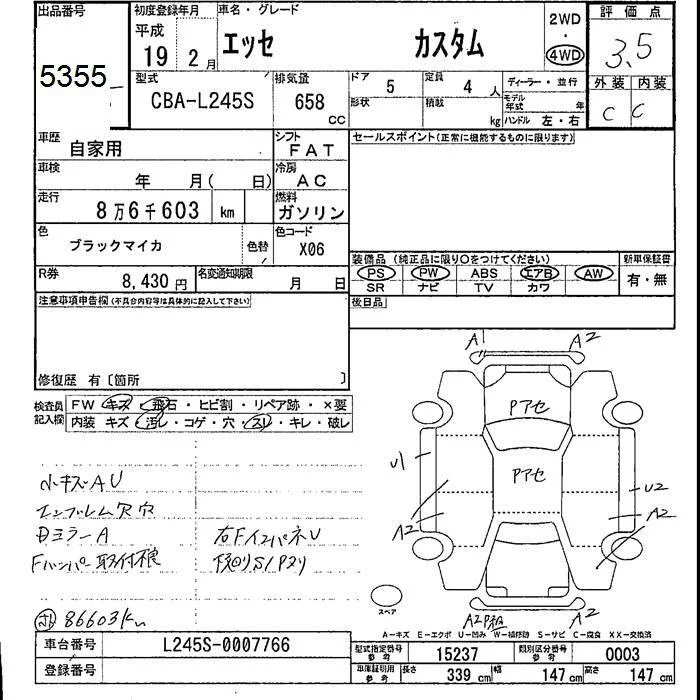 出品番号
5355
初度登録年月
平成
19 2月
車名・グレード
エッセ カスタム
2WD
・
4WD
評価点
3.5
外装 内装
C C
型式
CBA-L245S
排気量
658
CC
ドア
5
定員
4
人
形状
積載
kg
ディーラー・並行
モデル
年式
年
ハンドル 左・右
車歴
自家用
シフト
FAT
車検
年 月( 日)
冷房
AC
走行
8万6千603 km
燃料
ガソリン
色
ブラックマイカ
色替
色コード
X06
R券
8,430 円
名変通知期限
月 日
セールスポイント(正常に機能するものに限ります)
装備品 (純正品に限り○をつけてください)
新車保証書
PS PW ABS エアB AW
SR ナビ TV カワ
有・無
後日品
注意事項申告欄(不具合内容等は具体的に記入して下さい)
修復歴 有〔箇所 〕
検査員
記入欄
FW キズ・飛石・ヒビ割・リペア跡・×要
内装 キズ・汚レ・コゲ・穴・スレ・キレ・破レ
小キズAU
エンブレム欠穴
Dミラー A
Fバンパー取付横
右FインパネU
下廻りS/Pヌリ
86603km
A1
A2
Pアセ
Pアセ
U1
A2
U2
A2
A2P組
A2
スペア
A-キズ E-エクボ U-凹み W-補修跡 S-サビ C-腐食 XX-交換済
車台番号
L245S-0007766
登録番号
型式指定番号
参考
15237
類別区分番号
参考
0003
車庫証明用
参考
長さ
339 cm
幅
147 cm
高さ
147 cm